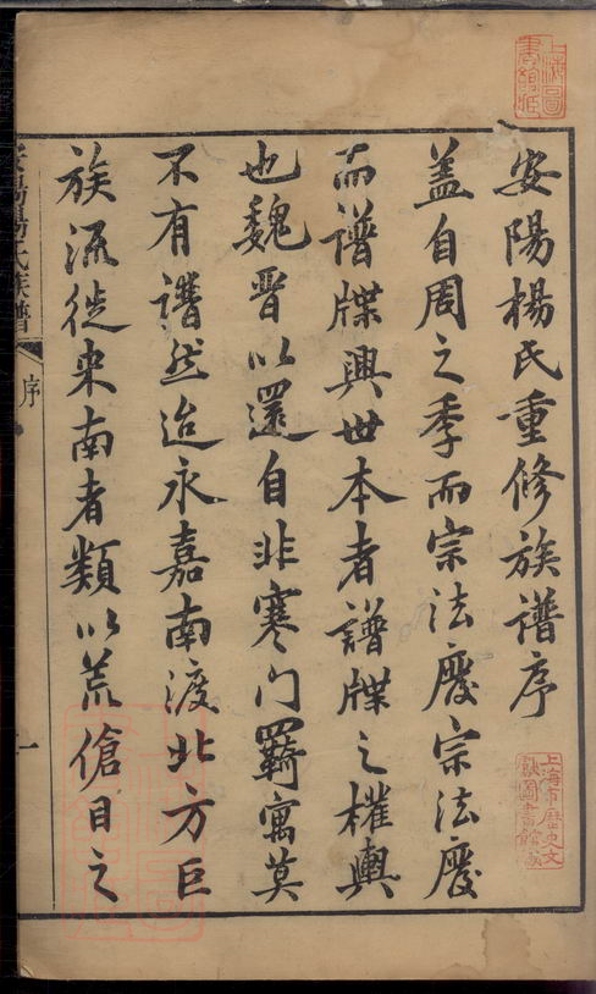 安陽楊氏重修族譜序
盖自周之季而宗法廢宗法廢
而譜牒興世本者譜牒之權輿
也魏晋以還自非寒门羈寓莫
不有譜然迨永嘉南渡北方巨
族流徙来南者類以荒傖目之
安陽楊氏族譜
序
一
上海圖書館藏
上海市歷史文獻圖書館藏